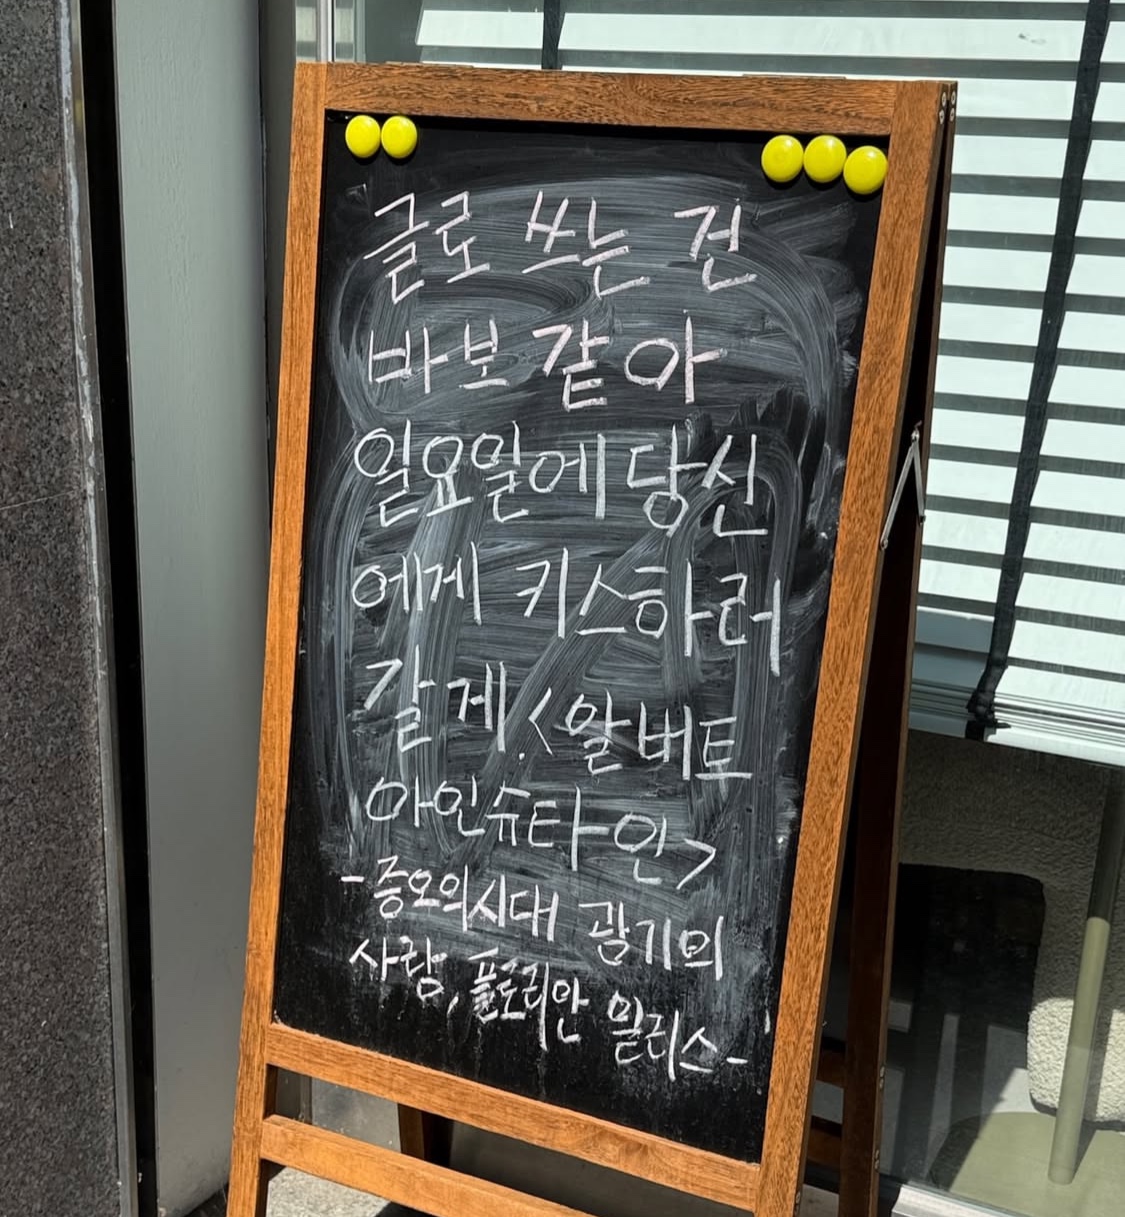 글로 쓰는 건
바보 같아
일요일에 당신
에게 키스하러
갈게.<알버트
아인슈타인>
-증오의시대 광기의
사랑, 플로리안 일리스-